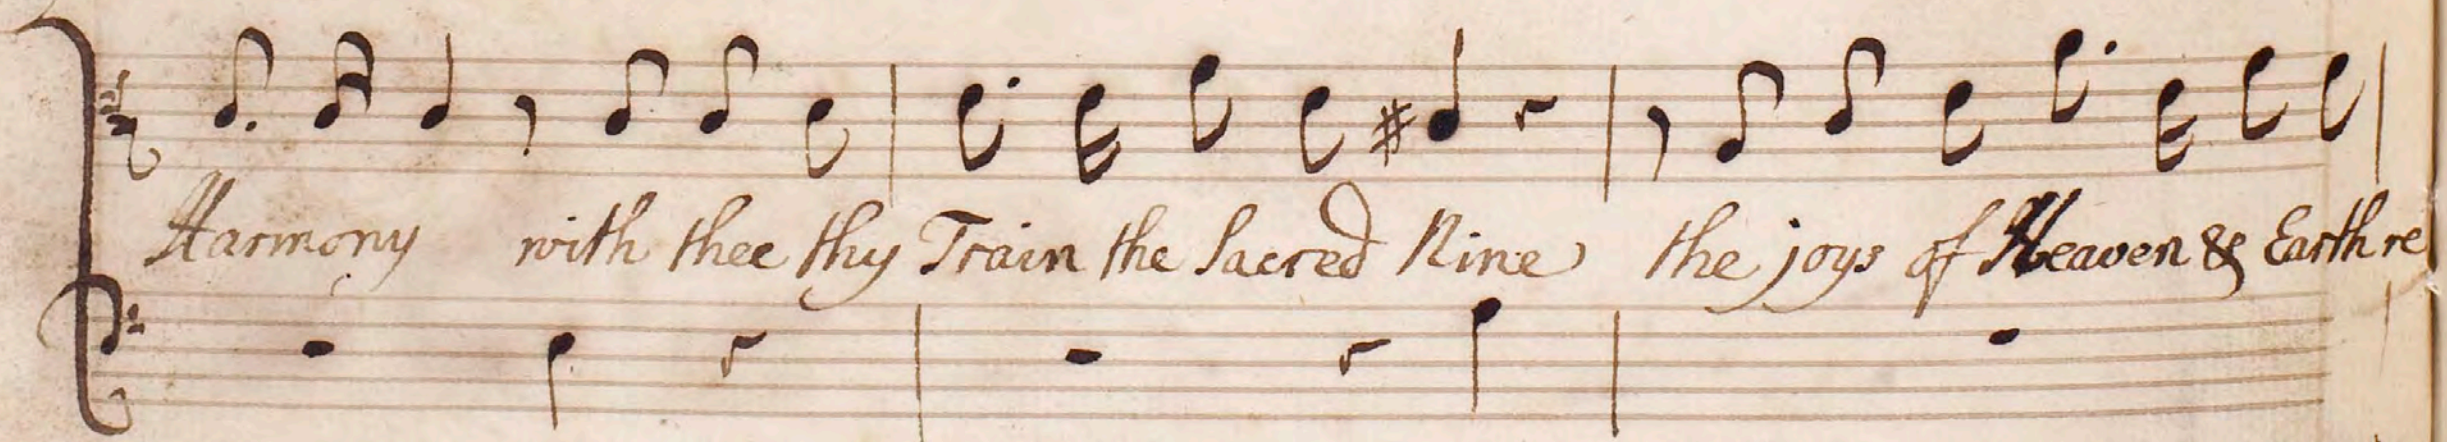 Harmony with thee thy Train the Sacred Nine the joys of Heaven & Earth re